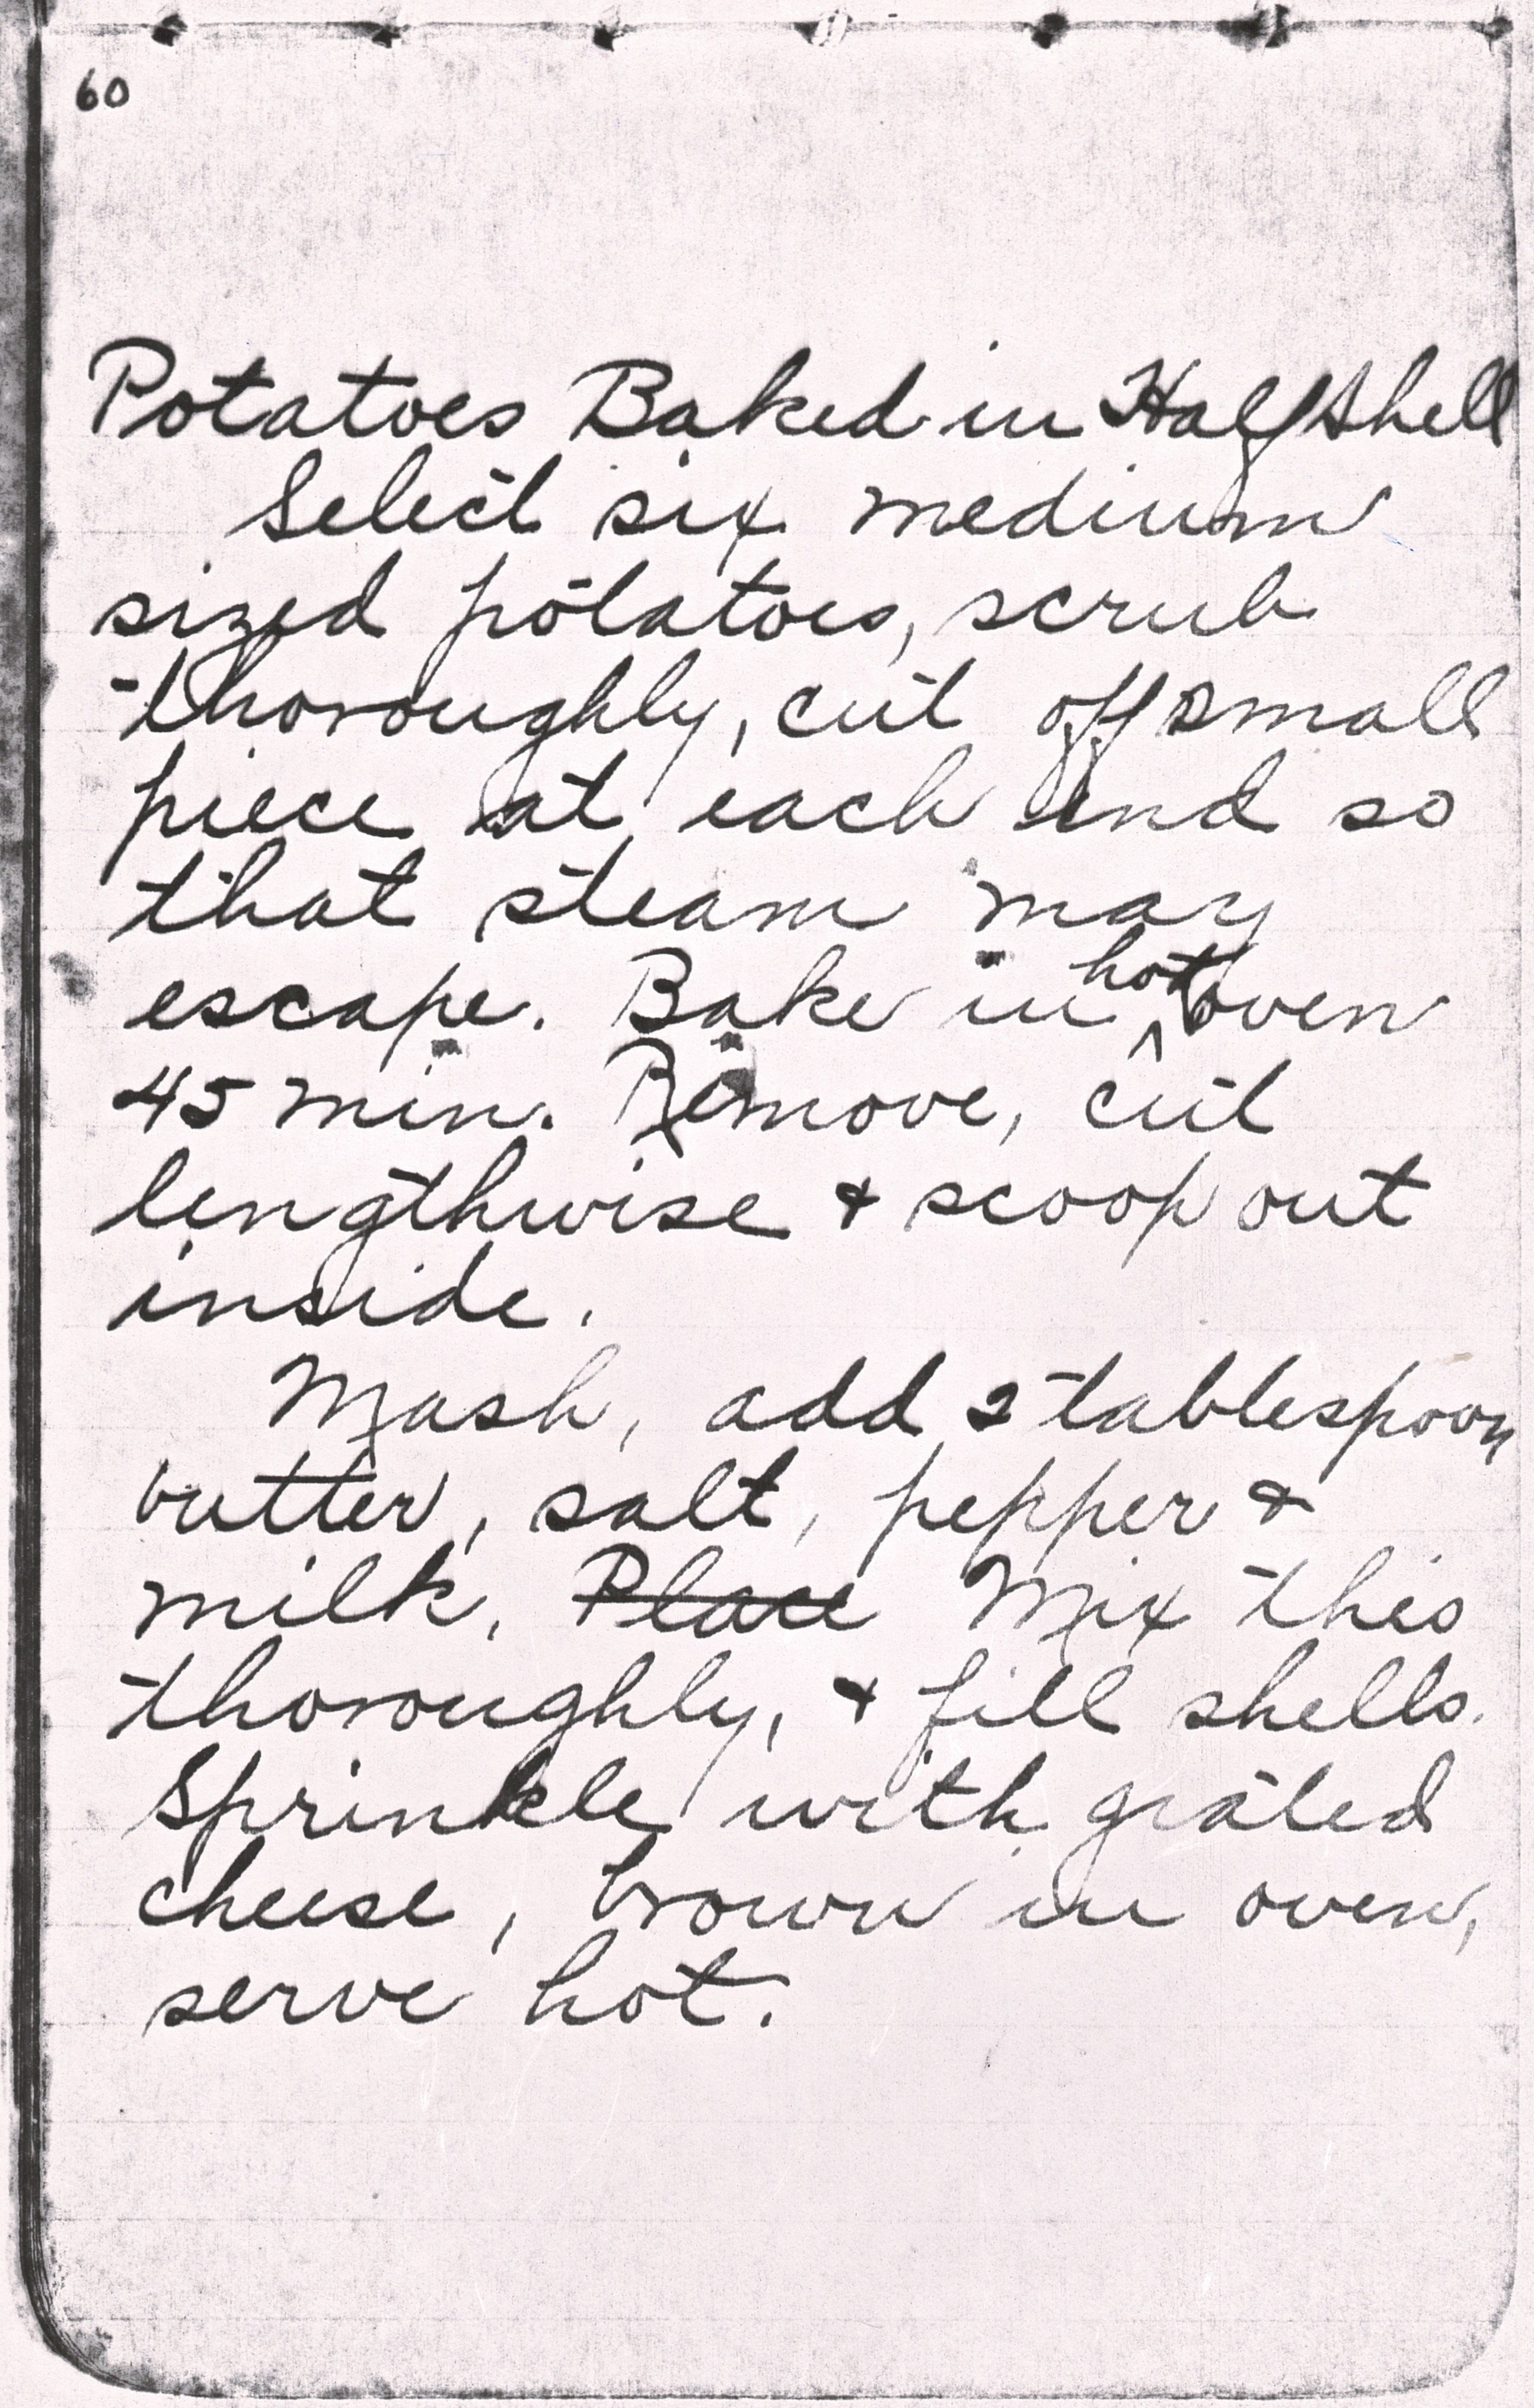 60
Potatoes Baked in Half Shell
Select six medium
sized potatoes, scrub
thoroughly, cut off small
piece at each end so
that steam may
escape. Bake in hot oven
45 min. Remove, cut
lengthwise & scoop out
inside.
Mash, add 2 tablespoon
butter, salt, pepper &
milk. Place Mix this
thoroughly, & fill shells.
Sprinkle with grated
cheese, brown in oven,
serve hot.